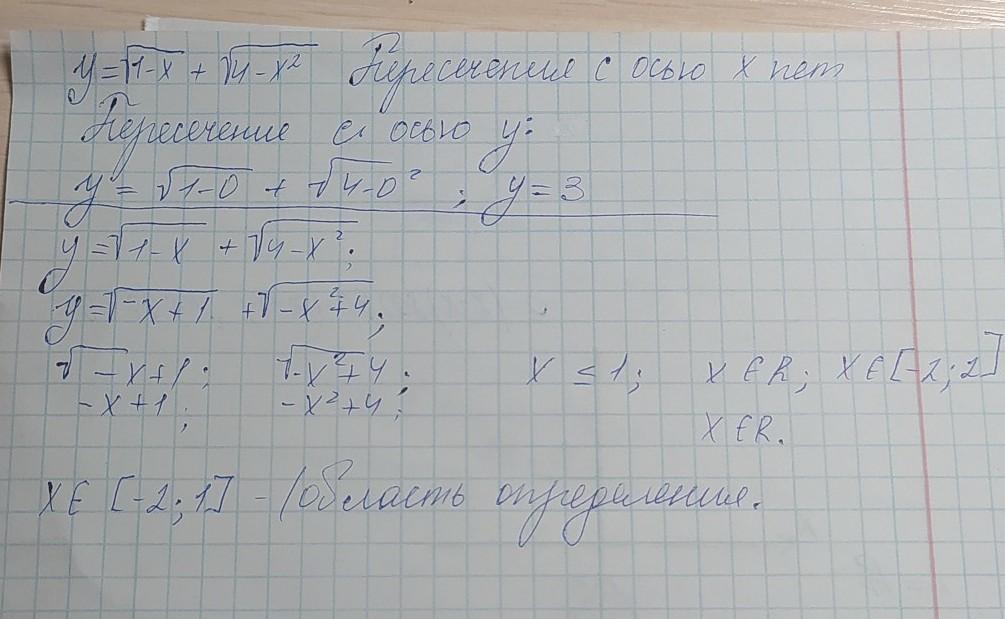 y=√1-x + √4-x² Пересечения с осью x нет
Пересечение с осью y:
y = √1-0 + √4-0² ; y = 3
y=√1-x + √4-x²;
y=√-x+1 + √-x²+4;
√-x+1; √-x²+4; x ≤ 1; x ∈ R; x ∈ [-2;2]
-x+1; -x²+4; x ∈ R.
x ∈ [-2;1] - область определения.